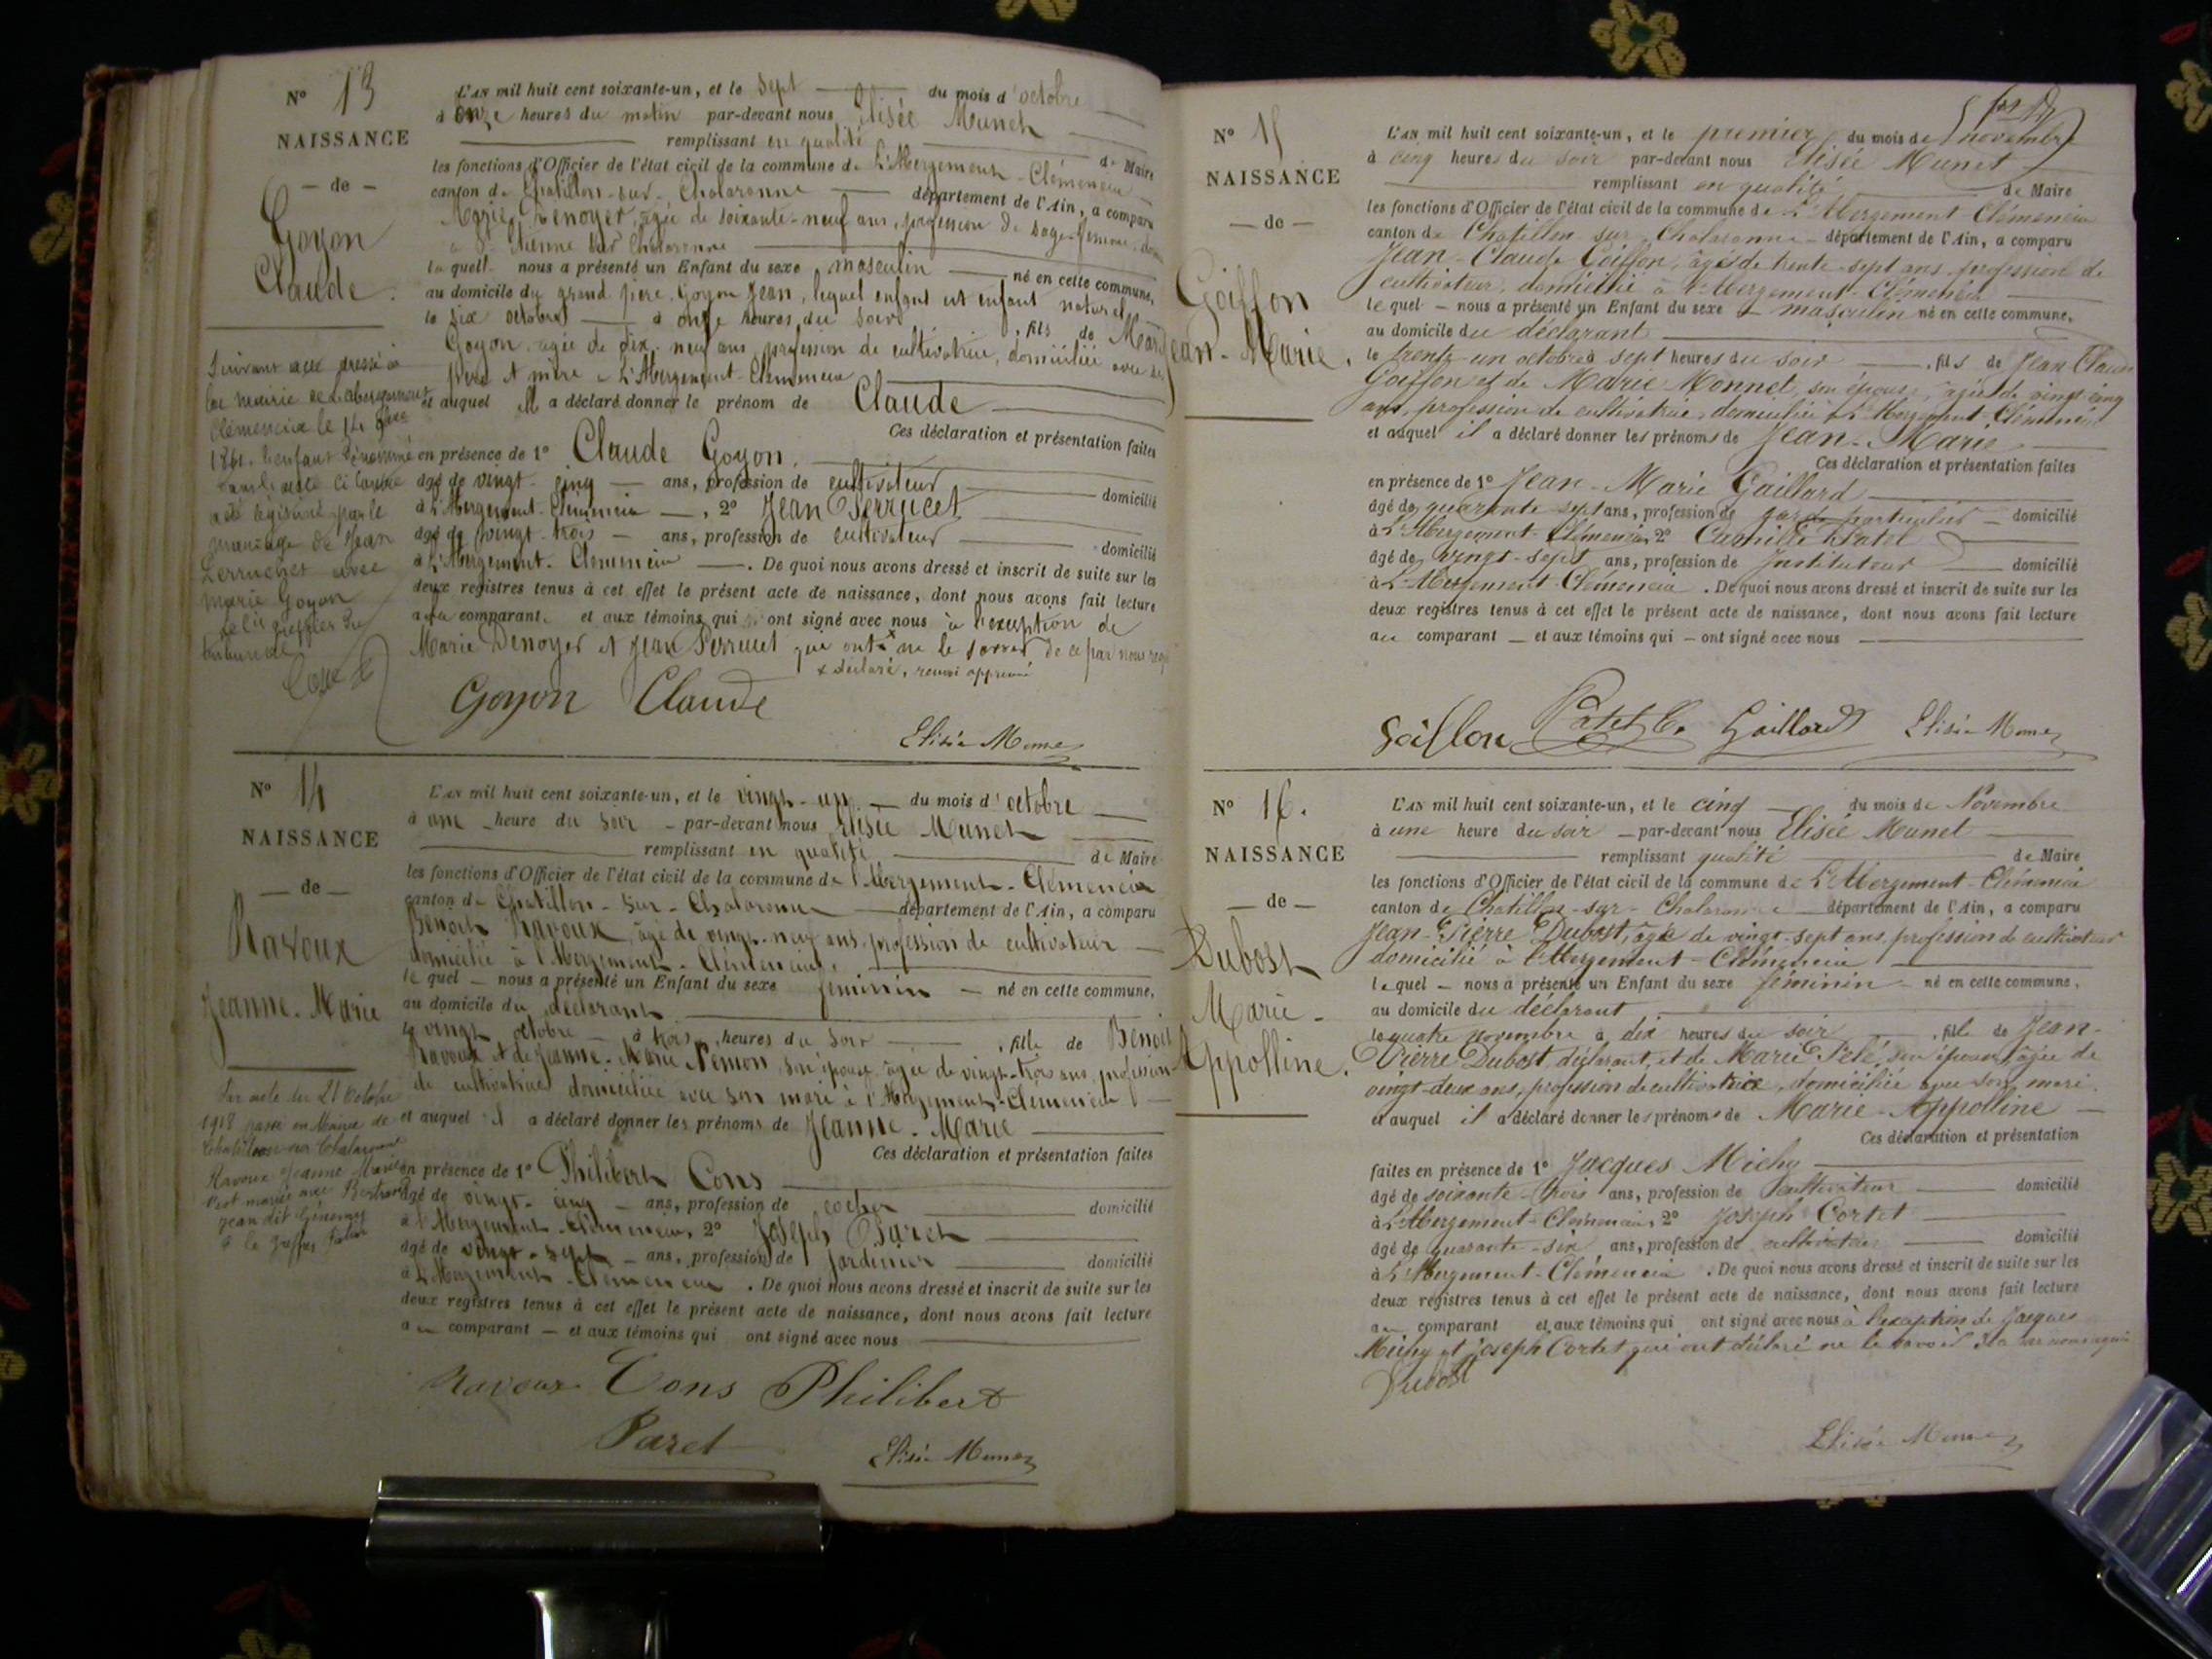 N° 13
NAISSANCE
— de —
Goyon
Claude.
L'AN mil huit cent soixante-un, et le sept du mois d'octobre
à onze heures du matin par-devant nous Elisée Munet
remplissant en qualité de Maire
les fonctions d'Officier de l'état civil de la commune de L'Abergement-Clémencia
canton de Chatillon-sur-Chalaronne département de l'Ain, a comparu
Marie Denoyer, âgée de soixante-neuf ans, profession de sage-femme,
à St Etienne sur Chalaronne
laquelle nous a présenté un Enfant du sexe masculin né en cette commune,
au domicile du grand père Goyon Jean, lequel enfant est enfant naturel
le six octobre à onze heures du soir, fils de Marie
Goyon, âgée de dix-neuf ans, profession de cultivatrice, domiciliée avec ses
père et mère à L'Abergement-Clémencia
et auquel il a déclaré donner le prénom de Claude
Ces déclaration et présentation faites
en présence de 1° Claude Goyon,
âgé de vingt-cinq ans, profession de cultivateur domicilié
à L'Abergement-Clémencia, 2° Jean Perrucet
âgé de vingt-trois ans, profession de cultivateur domicilié
à L'Abergement-Clémencia. De quoi nous avons dressé et inscrit de suite sur les
deux registres tenus à cet effet le présent acte de naissance, dont nous avons fait lecture
au comparant et aux témoins qui ont signé avec nous à l'exception de
Marie Denoyer et Jean Perrucet qui ont x ne le savoir de ce par nous
x déclaré, renvoi approuvé
Suivant acte dressé à
la mairie de L'abergement
Clémencia le 14
1861. l'enfant dénommé
dans l'acte ci contre
a été légitimé par le
mariage de Jean
Perrucet avec
marie Goyon
greffier du
tribunal
Goyon Claude
Elisée Munet
N° 14
NAISSANCE
— de —
Ravoux
Jeanne-Marie
L'AN mil huit cent soixante-un, et le vingt-un du mois d'octobre
à une heure du soir par-devant nous Elisée Munet
remplissant en qualité de Maire
les fonctions d'Officier de l'état civil de la commune de l'Abergement-Clémencia
canton de Chatillon-sur-Chalaronne département de l'Ain, a comparu
Benoit Ravoux, âgé de vingt-neuf ans, profession de cultivateur
domicilié à l'Abergement-Clémencia,
lequel nous a présenté un Enfant du sexe féminin né en cette commune,
au domicile du déclarant
le vingt octobre à trois heures du soir, fille de Benoit
Ravoux et de Jeanne-Marie son épouse âgée de vingt-trois ans, profession
de cultivatrice domiciliée avec son mari à l'Abergement-Clémencia
et auquel il a déclaré donner les prénoms de Jeanne-Marie
Ces déclaration et présentation faites
en présence de 1° Philibert Cons
âgé de vingt-cinq ans, profession de cocher domicilié
à l'Abergement-Clémencia, 2° Joseph Paret
âgé de vingt-sept ans, profession de jardinier domicilié
à L'Abergement-Clémencia. De quoi nous avons dressé et inscrit de suite sur les
deux registres tenus à cet effet le présent acte de naissance, dont nous avons fait lecture
au comparant et aux témoins qui ont signé avec nous
Par acte du 21 Octobre
1918 passé en Mairie de
Chatillon-sur-Chalaronne
Ravoux Jeanne Marie
s'est mariée avec Bertrand
Jean dit
le greffier
Ravoux Cons Philibert
Paret Elisée Munet
N° 15
NAISSANCE
— de —
Goiffon
Jean-Marie.
L'AN mil huit cent soixante-un, et le premier du mois de novembre
à cinq heures du soir par-devant nous Elisée Munet
remplissant en qualité de Maire
les fonctions d'Officier de l'état civil de la commune de L'Abergement-Clémencia
canton de Chatillon-sur-Chalaronne département de l'Ain, a comparu
Jean-Claude Goiffon, âgé de trente-sept ans profession de
cultivateur, domicilié à L'Abergement-Clémencia
lequel — nous a présenté un Enfant du sexe masculin né en cette commune,
au domicile du déclarant
le trente-un octobre à sept heures du soir, fils de Jean Claude
Goiffon et de Marie Monnet, son épouse, âgée de vingt-cinq
ans, profession de cultivatrice, domiciliée à L'Abergement-Clémencia
et auquel il a déclaré donner les prénoms de Jean-Marie
Ces déclaration et présentation faites
en présence de 1° Jean-Marie Gaillard
âgé de quarante sept ans, profession de garde particulier domicilié
à L'Abergement-Clémencia 2° Camille Patel
âgé de vingt-sept ans, profession de Instituteur domicilié
à L'Abergement-Clémencia. De quoi nous avons dressé et inscrit de suite sur les
deux registres tenus à cet effet le présent acte de naissance, dont nous avons fait lecture
au comparant — et aux témoins qui — ont signé avec nous
Goiffon Patel C. Gaillard Elisée Munet
N° 16.
NAISSANCE
— de —
Dubost
Marie-
Appolline.
L'AN mil huit cent soixante-un, et le cinq du mois de Novembre
à une heure du soir — par-devant nous Elisée Munet
remplissant qualité de Maire
les fonctions d'Officier de l'état civil de la commune de L'Abergement-Clémencia
canton de Chatillon-sur-Chalaronne département de l'Ain, a comparu
Jean-Pierre Dubost, âgé de vingt-sept ans, profession de cultivateur
domicilié à l'Abergement-Clémencia
lequel — nous a présenté un Enfant du sexe féminin né en cette commune,
au domicile du déclarant
le quatre novembre à dix heures du soir, fille de Jean-
Pierre Dubost, déclarant, et de Marie Pelé, son épouse, âgée de
vingt-deux ans, profession de cultivatrice, domiciliée avec son mari.
et auquel il a déclaré donner les prénoms de Marie-Appolline
Ces déclaration et présentation
faites en présence de 1° Jacques Michy
âgé de soixante-trois ans, profession de cultivateur domicilié
à L'Abergement-Clémencia, 2° Joseph Cortet
âgé de quarante-six ans, profession de cultivateur domicilié
à L'Abergement-Clémencia. De quoi nous avons dressé et inscrit de suite sur les
deux registres tenus à cet effet le présent acte de naissance, dont nous avons fait lecture
au comparant et aux témoins qui ont signé avec nous à l'exception de Jacques
Michy et Joseph Cortet qui ont déclaré ne le savoir
Dubost
Elisée Munet